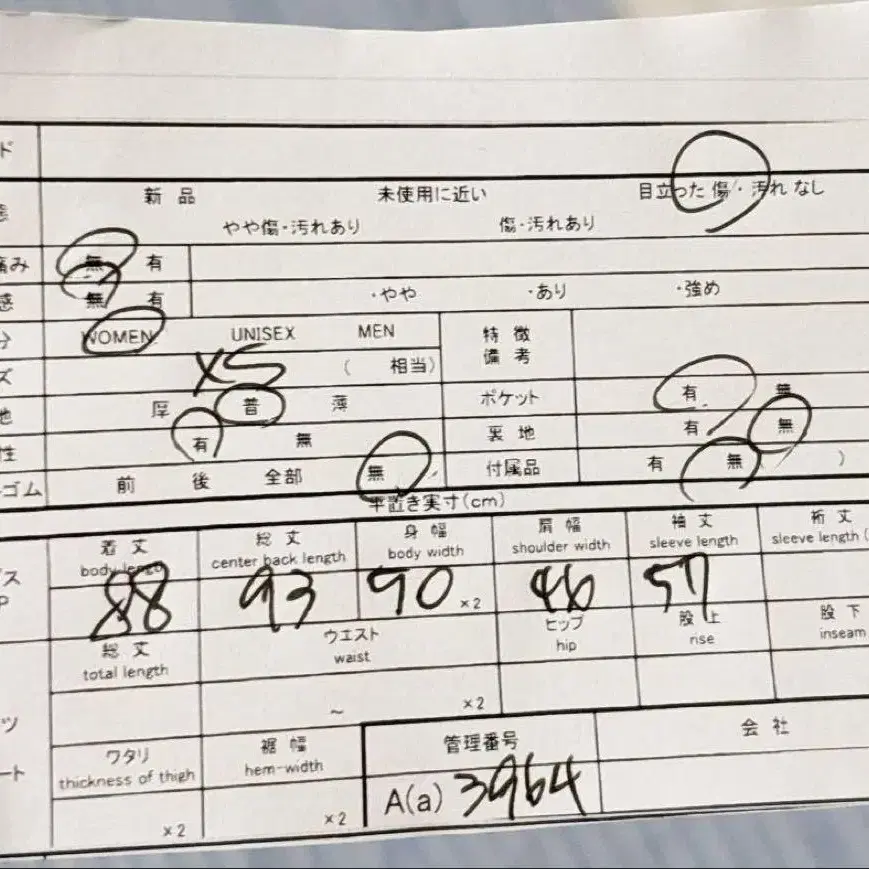 ド
新品 未使用に近い 目立った傷・汚れなし
やや傷・汚れあり 傷・汚れあり
痛み 無 有
感 無 有 ・やや ・あり ・強め
分 WOMEN UNISEX MEN 特徴
備考
ズ XS ( 相当)
地 厚 普 薄 ポケット 有 無
性 有 無 裏地 有 無
ゴム 前 後 全部 無 付属品 有 無 )
平置き実寸(cm)
着丈 総丈 身幅 肩幅 袖丈 裄丈
body length center back length body width shoulder width sleeve length sleeve length (
88 93 50 ×2 46 57
総丈 ウエスト ヒップ 股上 股下
total length waist hip rise inseam
~ ×2
ワタリ 裾幅 管理番号 会社
thickness of thigh hem-width
×2 ×2 A(a) 3964